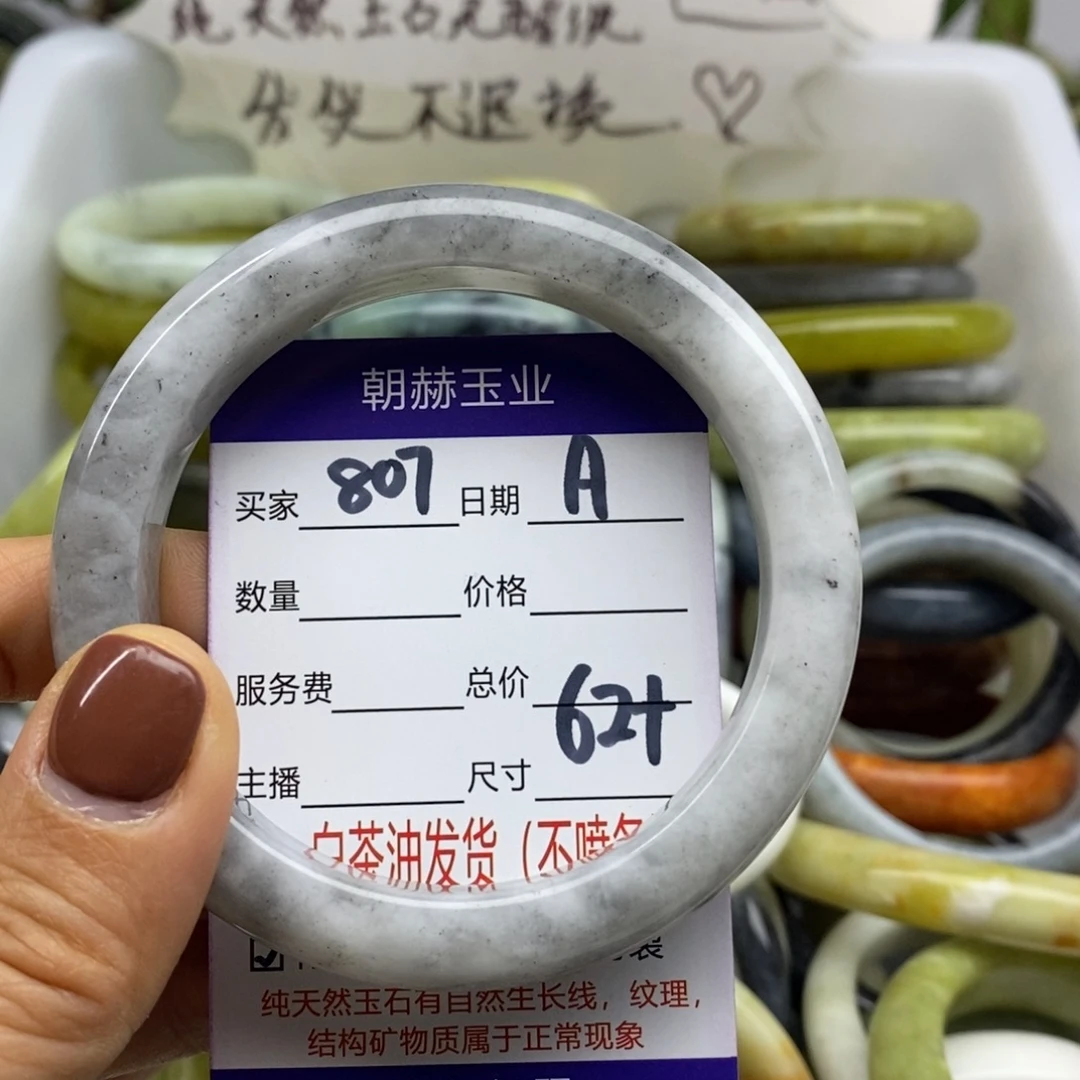 纯天然玉石无酸洗
售出不退换
朝赫玉业
买家 807 日期 A
数量 价格
服务费 总价 621
主播 尺寸
白茶油发货（不喷
装
纯天然玉石有自然生长线，纹理，
结构矿物质属于正常现象